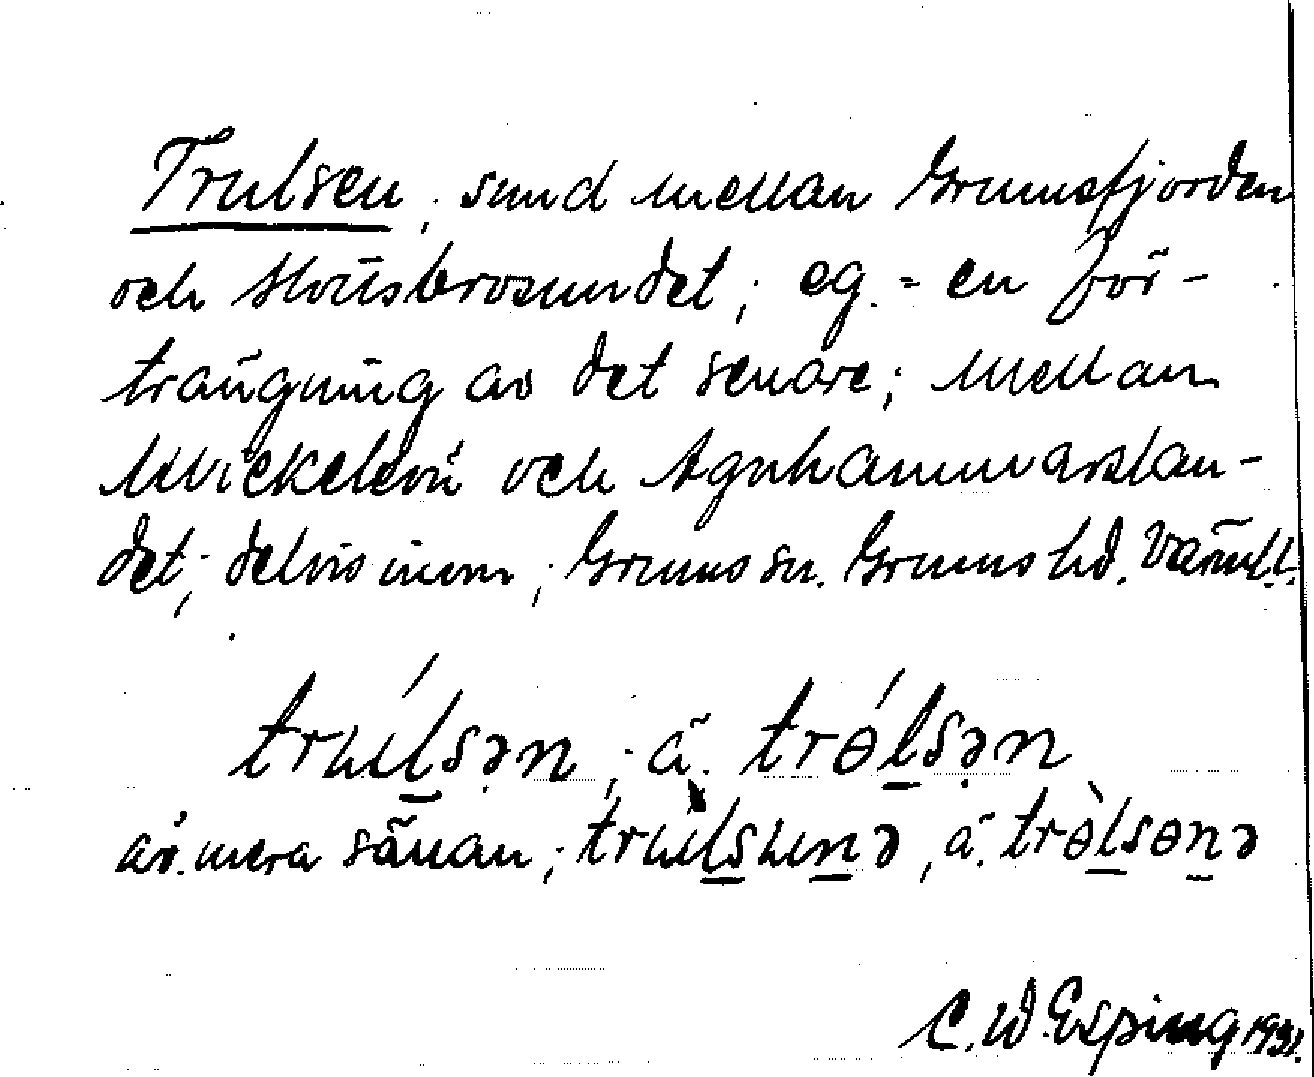 Trulsen, sund mellan Grumsfjorden
och Slottsbrosundet; eg. = en för-
trängning av det senare; mellan
och Agnhammarslan-
det; delvis inom; Grums sn. Grums hd. Värml.
trúlsən; ä. trɵ́lsən
äv. mera sällan; trùlsunə, ä. trɵ̀lsɵnə
C. W. Esping 1931.